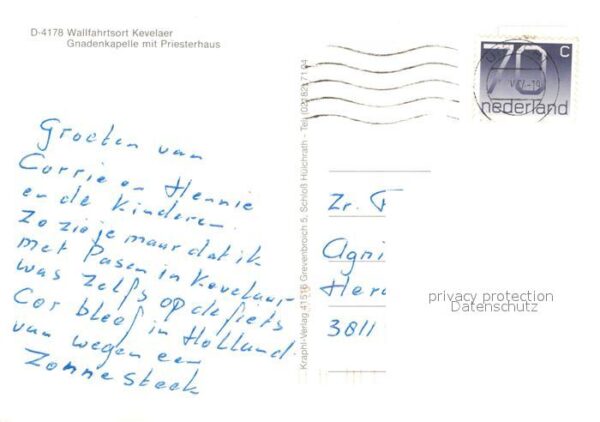 D-4178 Wallfahrtsort Kevelaer
Gnadenkapelle mit Priesterhaus
Groeten van
Corrie en Hennie
en de kinderen.
Zo zie je maar dat ik
met Pasen in Kevelaer
was zelfs op de fiets
Cor bleef in Holland.
van wegen een
Zonnesteek
Kraphl-Verlag 41516 Grevenbroich 5, Schloß Hülchrath - Tel. (02182) 71 04
70 c
nederland
Zr. F
Agni
Her
3811
privacy protection
Datenschutz